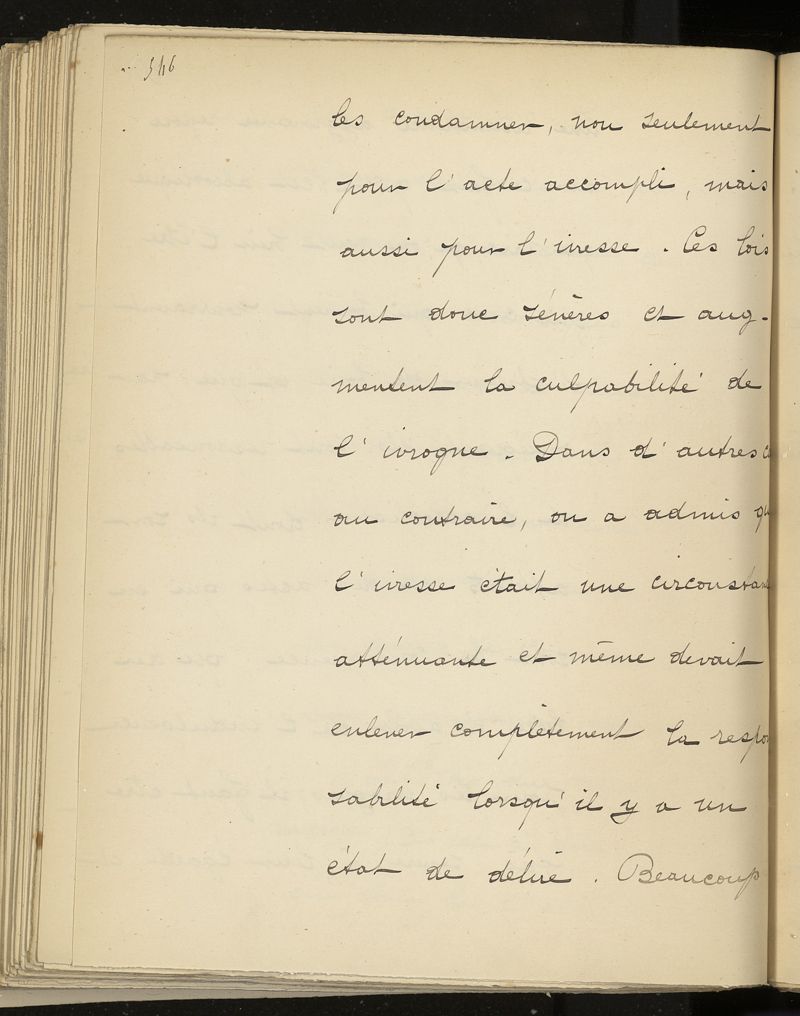 546
les condamner, non seulement
pour l'acte accompli, mais
aussi pour l'ivresse. Ces lois
sont donc sévères et aug-
mentent la culpabilité de
l'ivrogne. Dans d'autres c
au contraire, on a admis qu
l'ivresse était une circonstan
atténuante et même devait
enlever complètement la respon
sabilité lorsqu'il y a un
état de délire. Beaucoup